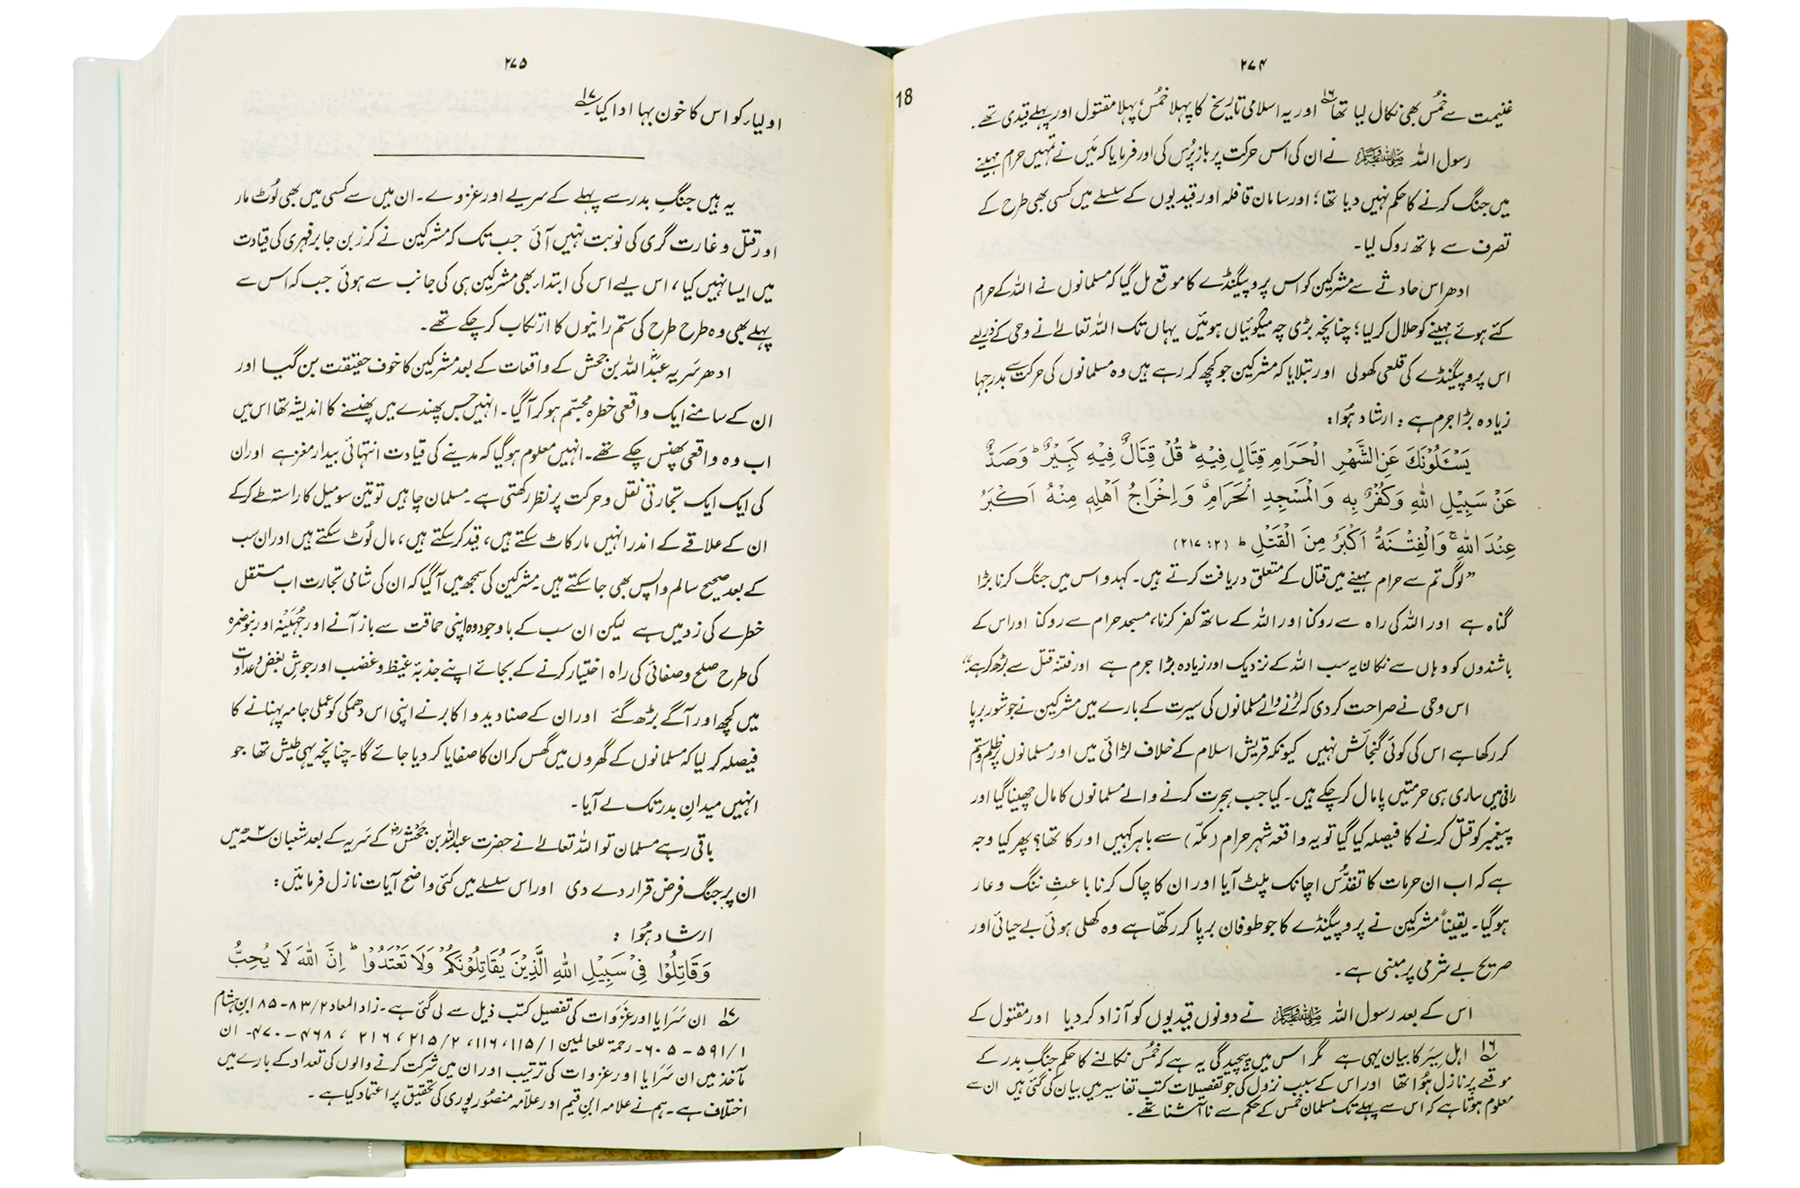 ۲۷۴
غنیمت سے خُمس بھی نکال لیا تھا۱۶ اور یہ اسلامی تاریخ کا پہلا خمس، پہلا مقتول اور پہلے قیدی تھے۔
رسول اللہ ﷺ نے ان کی اس حرکت پر باز پُرس کی اور فرمایا کہ میں نے تمہیں حرام مہینے
میں جنگ کرنے کا حکم نہیں دیا تھا؛ اور سامان قافلہ اور قیدیوں کے سلسلے میں کسی بھی طرح کے
تصرف سے ہاتھ روک لیا۔
ادھر اس حادثے سے مشرکین کو اس پروپیگنڈے کا موقع مل گیا کہ مسلمانوں نے اللہ کے حرام
کئے ہوئے مہینے کو حلال کر لیا؛ چنانچہ بڑی چہ میگوئیاں ہوئیں یہاں تک اللہ تعالےٰ نے وحی کے ذریعے
اس پروپیگنڈے کی قلعی کھولی اور بتلایا کہ مشرکین جو کچھ کر رہے ہیں وہ مسلمانوں کی حرکت سے بدرجہا
زیادہ بڑا جرم ہے : ارشاد ہُوا:
يَسْـَٔلُوْنَكَ عَنِ الشَّهْرِ الْحَرَامِ قِتَالٍ فِيْهِ ۭ قُلْ قِتَالٌ فِيْهِ كَبِيْرٌ ۭ وَصَدٌّ
عَنْ سَبِيْلِ اللهِ وَكُفْرٌۢ بِهٖ وَالْمَسْجِدِ الْحَرَامِ ۤ وَاِخْرَاجُ اَهْلِهٖ مِنْهُ اَكْبَرُ
عِنْدَ اللهِ ۚ وَالْفِتْنَةُ اَكْبَرُ مِنَ الْقَتْلِ ۭ (۲: ۲۱۷)
”لوگ تم سے حرام مہینے میں قتال کے متعلق دریافت کرتے ہیں۔ کہدو اس میں جنگ کرنا بڑا
گناہ ہے اور اللہ کی راہ سے روکنا اور اللہ کے ساتھ کفر کرنا، مسجد حرام سے روکنا اور اس کے
باشندوں کو وہاں سے نکالنا یہ سب اللہ کے نزدیک اور زیادہ بڑا جرم ہے اور فتنہ قتل سے بڑھ کر ہے“
اس وحی نے صراحت کر دی کہ لڑنے والے مسلمانوں کی سیرت کے بارے میں مشرکین نے جو شور برپا
کر رکھا ہے اس کی کوئی گنجائش نہیں کیونکہ قریش اسلام کے خلاف لڑائی میں اور مسلمانوں پر ظلم و ستم
رانی میں ساری ہی حرمتیں پامال کر چکے ہیں۔ کیا جب ہجرت کرنے والے مسلمانوں کا مال چھینا گیا اور
پیغمبر کو قتل کرنے کا فیصلہ کیا گیا تو یہ واقعہ شہر حرام (مکہ) سے باہر کہیں اور کا تھا؟ پھر کیا وجہ
ہے کہ اب ان حرمات کا تقدُّس اچانک پلٹ آیا اور ان کا چاک کرنا باعثِ ننگ و عار
ہو گیا۔ یقیناً مشرکین نے پروپیگنڈے کا جو طوفان برپا کر رکھّا ہے وہ کھلی ہوئی بے حیائی اور
صریح بے شرمی پر مبنی ہے۔
اس کے بعد رسول اللہ ﷺ نے دونوں قیدیوں کو آزاد کر دیا اور مقتول کے
۱۶ اہل سِیَر کا بیان یہی ہے مگر اس میں پیچیدگی یہ ہے کہ خُمُس نکالنے کا حکم جنگ بدر کے
موقعے پر نازل ہُوا تھا اور اس کے سبب نزول کی جو تفصیلات کتب تفاسیر میں بیان کی گئی ہیں ان سے
معلوم ہوتا ہے کہ اس سے پہلے تک مسلمان خمس کے حکم سے نا آشنا تھے۔
18
۲۷۵
اولیاء کو اس کا خون بہا ادا کیا۔۱۷
یہ ہیں جنگِ بدر سے پہلے کے سریے اور غزوے۔ ان میں سے کسی میں بھی لُوٹ مار
اور قتل و غارت گری کی نوبت نہیں آئی جب تک کہ مشرکین نے کرز بن جابر فہری کی قیادت
میں ایسا نہیں کیا، اس لیے اس کی ابتداء بھی مشرکین ہی کی جانب سے ہوئی جب کہ اس سے
پہلے بھی وہ طرح طرح کی ستم رانیوں کا ارتکاب کر چکے تھے۔
ادھر سَریہ عبدؓاللہ بن جحش کے واقعات کے بعد مشرکین کا خوف حقیقت بن گیا اور
ان کے سامنے ایک واقعی خطرہ مجسّم ہو کر آ گیا۔ انہیں جس پھندے میں پھنسنے کا اندیشہ تھا اس میں
اب وہ واقعی پھنس چکے تھے۔ انہیں معلوم ہو گیا کہ مدینے کی قیادت انتہائی بیدار مغز ہے اور ان
کی ایک ایک تجارتی نقل و حرکت پر نظر رکھتی ہے۔ مسلمان چاہیں تو تین سو میل کا راستہ طے کر کے
ان کے علاقے کے اندر انہیں مار کاٹ سکتے ہیں، قید کر سکتے ہیں، مال لُوٹ سکتے ہیں اور ان سب
کے بعد صحیح سالم واپس بھی جا سکتے ہیں۔ مشرکین کی سمجھ میں آ گیا کہ ان کی شامی تجارت اب مستقل
خطرے کی زد میں ہے لیکن ان سب کے باوجود وہ اپنی حماقت سے باز آنے اور جُہَیْنَہ اور بنو ضمرہ
کی طرح صلح و صفائی کی راہ اختیار کرنے کے بجائے اپنے جذبۂ غیظ و غضب اور جوش بغض و عداوت
میں کچھ اور آگے بڑھ گئے اور ان کے صنادید و اکابر نے اپنی اس دھمکی کو عملی جامہ پہنانے کا
فیصلہ کر لیا کہ مسلمانوں کے گھروں میں گھس کر ان کا صفایا کر دیا جائے گا۔ چنانچہ یہی طیش تھا جو
انہیں میدانِ بدر تک لے آیا۔
باقی رہے مسلمان تو اللہ تعالےٰ نے حضرت عبداللہ بن جَحْش رض کے سَریہ کے بعد شعبان ۲ھ میں
ان پر جنگ فرض قرار دے دی اور اس سلسلے میں کئی واضح آیات نازل فرمائیں:
ارشاد ہُوا :
وَقَاتِلُوْا فِيْ سَبِيْلِ اللهِ الَّذِيْنَ يُقَاتِلُوْنَكُمْ وَلَا تَعْتَدُوْا ۭ اِنَّ اللهَ لَا يُحِبُّ
۱۷ ان سَرَایا اور غزَوات کی تفصیل کتب ذیل سے لی گئی ہے۔ زاد المعاد ۲/۸۳-۸۵ ابن ہشام
۱/۵۹۱ - ۶۰۵۔ رحمۃ للعالمین ۱/۱۱۵، ۱۱۶، ۲/۲۱۵، ۲۱۶، ۴۶۸-۴۷۰۔ ان
مآخذ میں ان سَرَایا اور غزوات کی ترتیب اور ان میں شرکت کرنے والوں کی تعداد کے بارے میں
اختلاف ہے۔ ہم نے علامہ ابنِ قیم اور علّامہ منصُور پوری کی تحقیق پر اعتماد کیا ہے۔